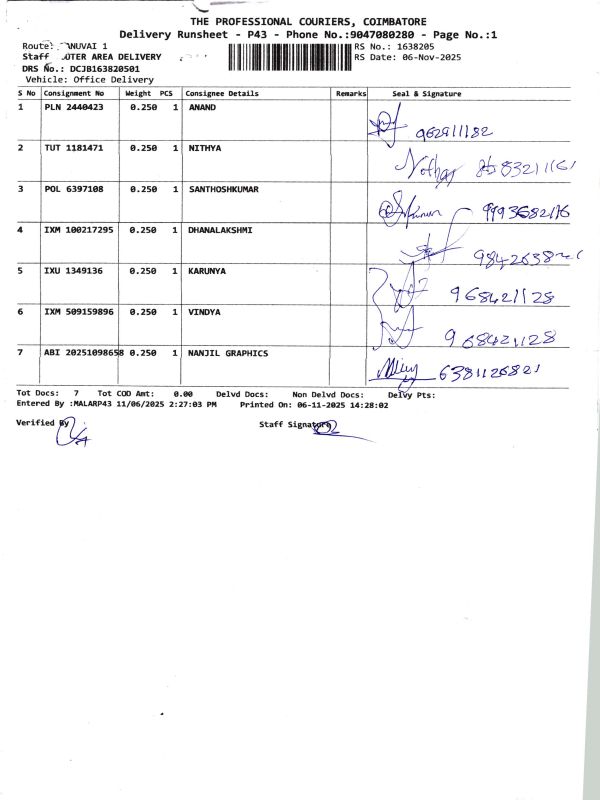 THE PROFESSIONAL COURIERS, COIMBATORE
Delivery Runsheet - P43 - Phone No.:9047080280 - Page No.:1
Route: ANUVAI 1
RS No.: 1638205
Staff OUTER AREA DELIVERY
RS Date: 06-Nov-2025
DRS No.: DCJB163820501
Vehicle: Office Delivery
S No Consignment No Weight PCS Consignee Details Remarks Seal & Signature
1 PLN 2440423 0.250 1 ANAND 962911182
2 TUT 1181471 0.250 1 NITHYA
3 POL 6397108 0.250 1 SANTHOSHKUMAR
4 IXM 100217295 0.250 1 DHANALAKSHMI
5 IXU 1349136 0.250 1 KARUNYA 968421128
6 IXM 509159896 0.250 1 VINDYA 968421128
7 ABI 20251098658 0.250 1 NANJIL GRAPHICS
Tot Docs: 7 Tot COD Amt: 0.00 Delvd Docs: Non Delvd Docs: Delvy Pts:
Entered By :MALARP43 11/06/2025 2:27:03 PM Printed On: 06-11-2025 14:28:02
Verified By Staff Signature